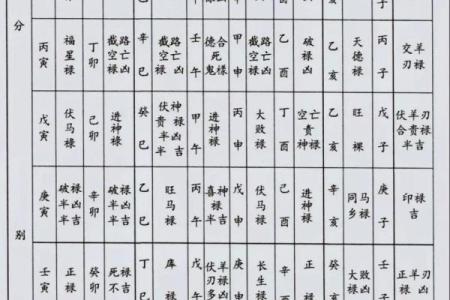 分
别
丙寅 福星禄 丁卯 截路空亡禄凶 辛巳 截路空亡禄凶 壬午 德合死鬼禄 甲申 截路空亡禄凶 乙酉 破禄凶 乙亥 天德禄 丙子 交羊刃禄
戊寅 伏马禄 己卯 进神禄 癸巳 伏神贵禄半凶半吉 甲午 进神禄 丙申 大败禄 丁酉 空亡贵神禄 乙亥 旺裸 戊子 伏羊合刃贵禄半吉
庚寅 破禄破凶半吉半 辛卯 破禄半凶半吉 乙巳 旺马禄 甲午 喜神禄半吉半 戊申 伏马禄 己酉 进神禄 辛亥 同马乡禄 庚子 印禄吉
壬寅 正禄 癸卯 死禄不吉 丁巳 库禄 伏羊刃禄多凶 庚申 长生禄 辛 正禄 癸 大败禄凶 壬子 正羊禄刃凶